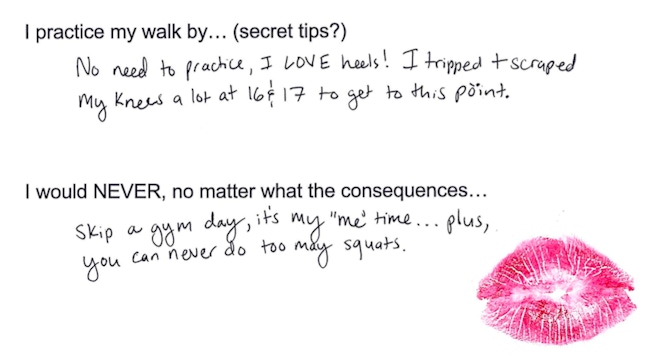 I practice my walk by... (secret tips?)
No need to practice, I LOVE heels! I tripped + scraped
my knees a lot at 16 & 17 to get to this point.
I would NEVER, no matter what the consequences...
Skip a gym day, it's my "me" time... plus,
you can never do too may squats.